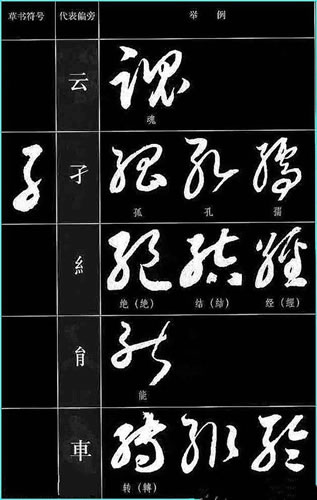 草书符号 代表偏旁 举 例
云
魂
子 孑
孤 孔 孺
糹
绝（絶） 结（結） 经（經）
能
車
转（轉）